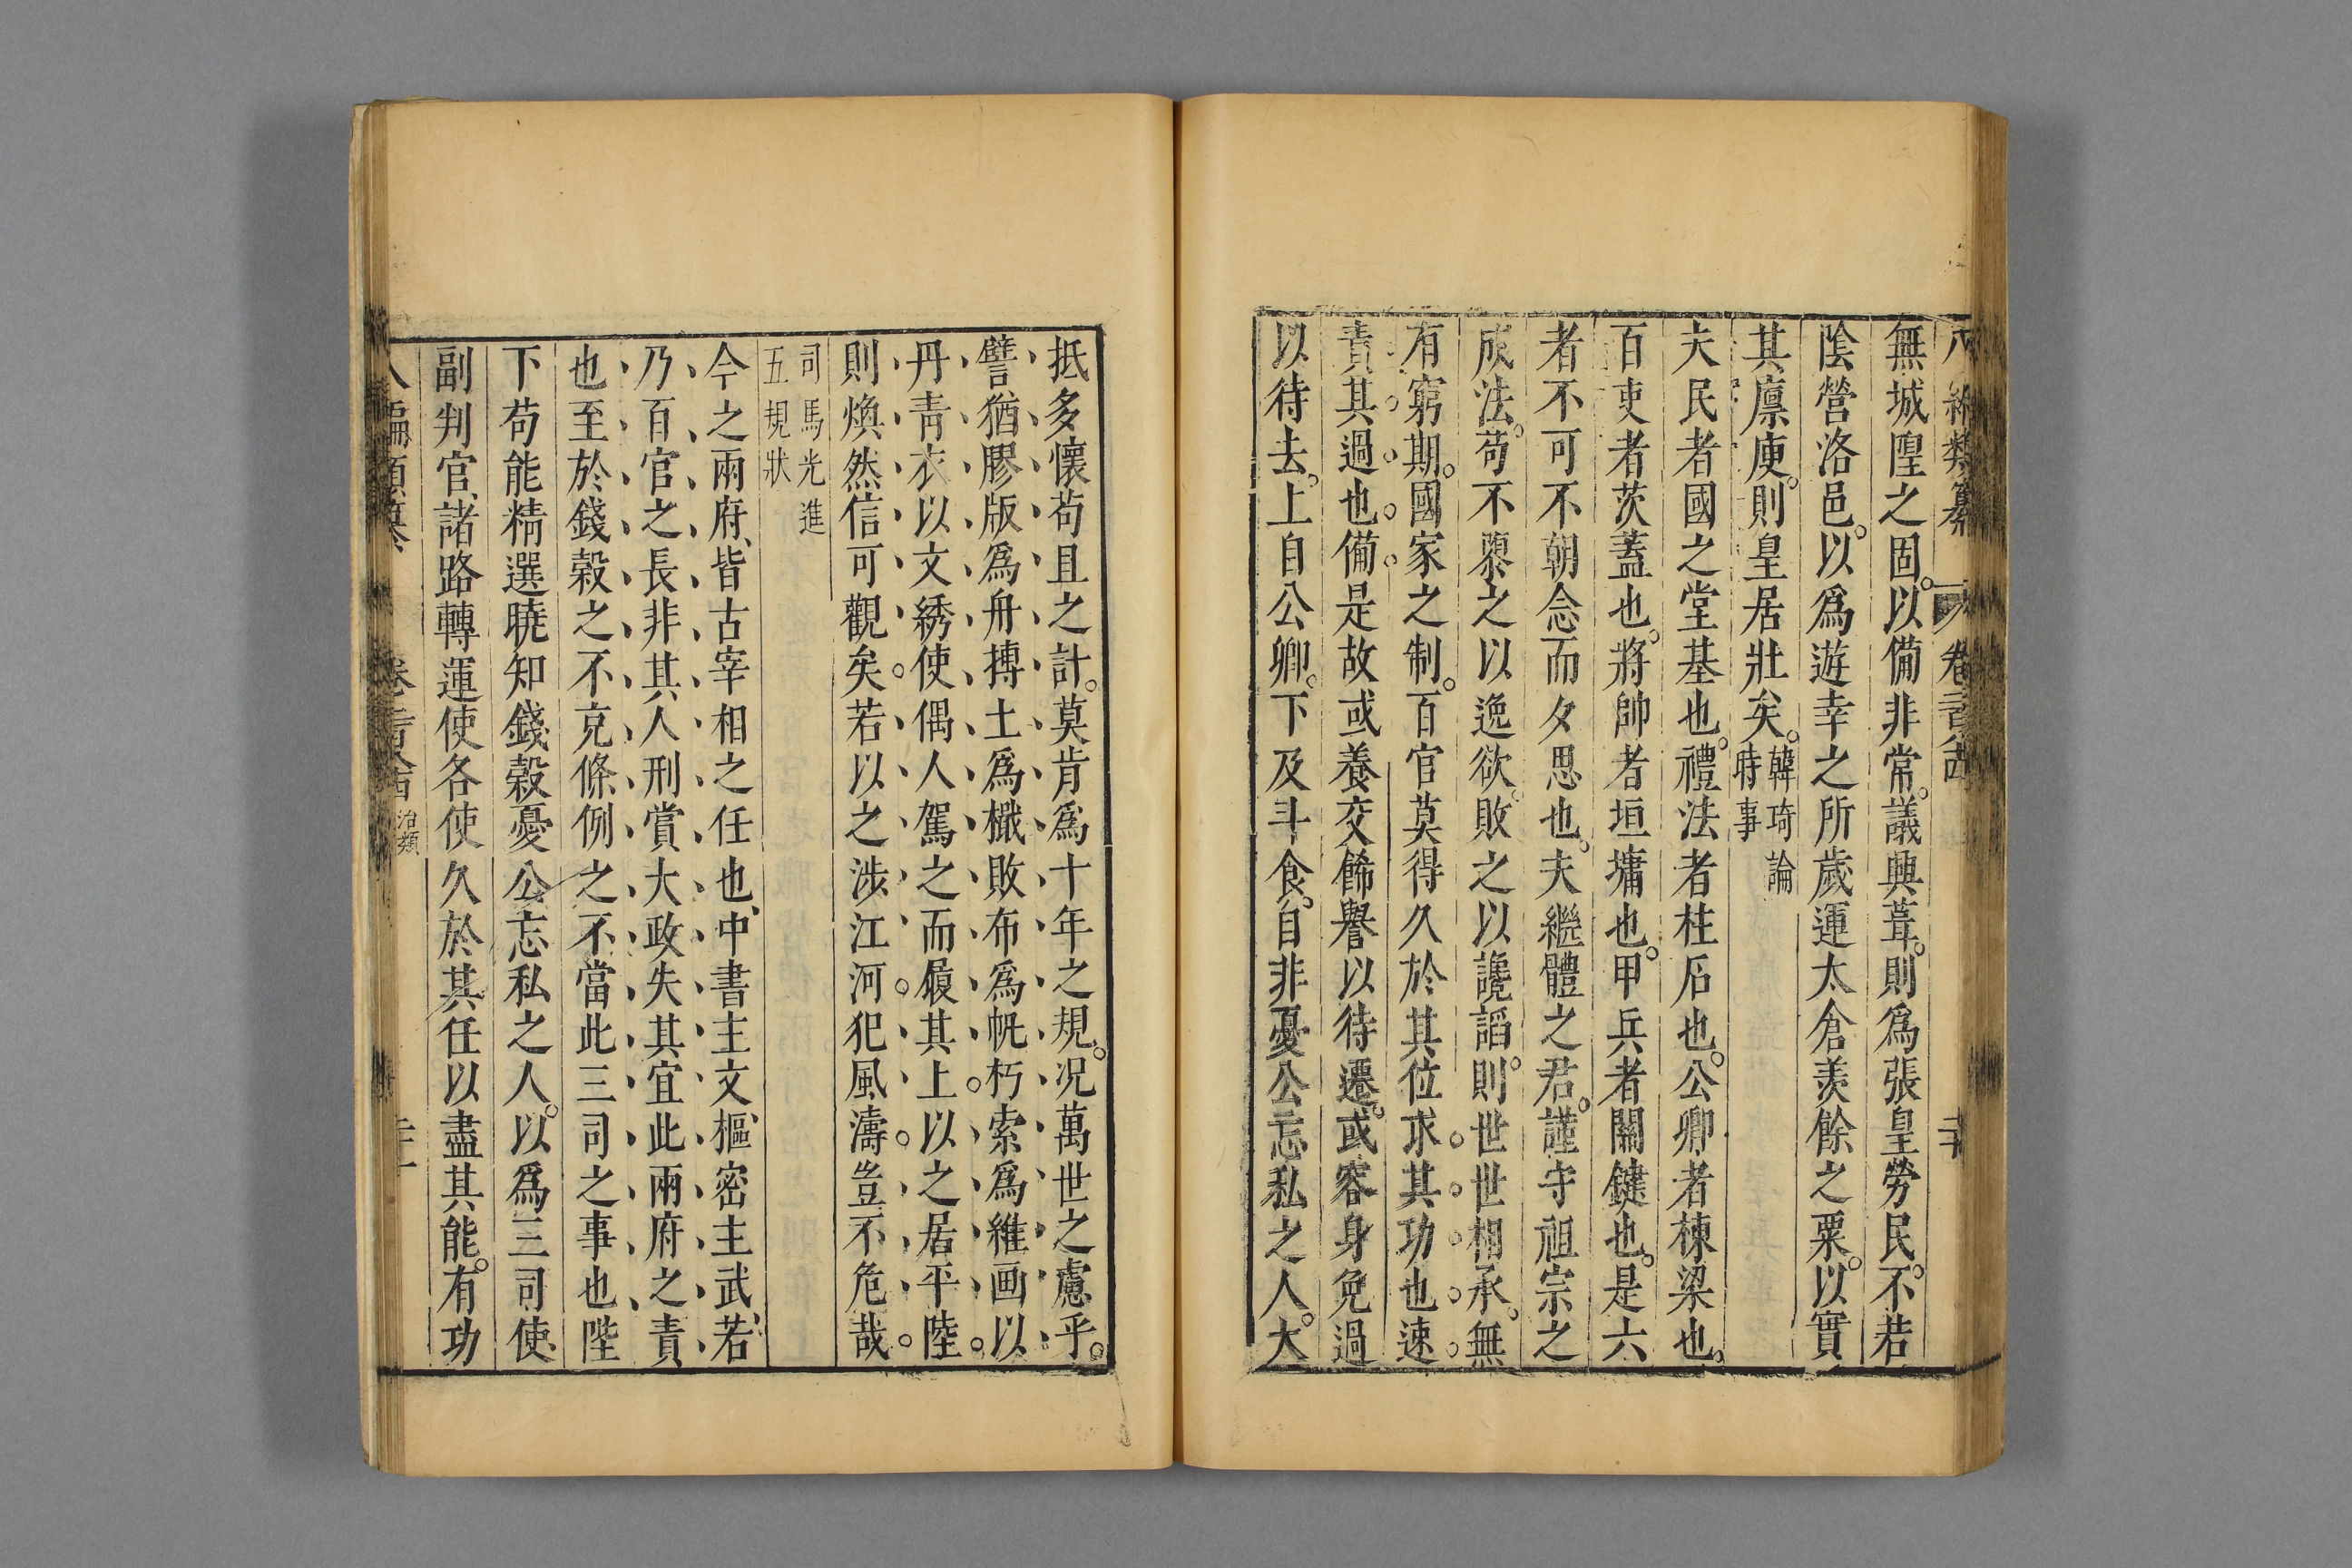 無城隍之固。以備非常。議興葺。則爲張皇勞民。不若
陰營洛邑。以爲遊幸之所歲運太倉羨餘之粟。以實
其廪庾。則皇居壯矣。韓琦論
時事
夫民者國之堂基也。禮法者柱石也。公卿者棟梁也。
百吏者茨蓋也。將帥者垣墉也。甲兵者關鍵也。是六
者不可不朝念而夕思也。夫繼體之君。謹守祖宗之
成法。苟不隳之以逸欲。敗之以讒謟。則世世相承。無
有窮期。國家之制。百官莫得久於其位求其功也速
責其過也備是故或養交飾譽以待遷。或容身免過
以待去。上自公卿。下及斗食。自非憂公忘私之人。大
抵多懷苟且之計。莫肯爲十年之規。况萬世之慮乎。
譬猶膠版爲舟摶土爲檝敗布爲帆朽索爲維画以
丹青衣以文綉使偶人駕之而履其上以之居平陸
則煥然信可觀矣若以之涉江河犯風濤豈不危哉
司馬光進
五規狀
今之兩府、皆古宰相之任也、中書主文、樞密主武、若
乃百官之長非其人刑賞大政失其宜此兩府之責
也至於錢穀之不充條例之不當此三司之事也陛
下苟能精選曉知錢穀憂公忘私之人。以爲三司使
副判官、諸路轉運使各使久於其任以盡其能。有功